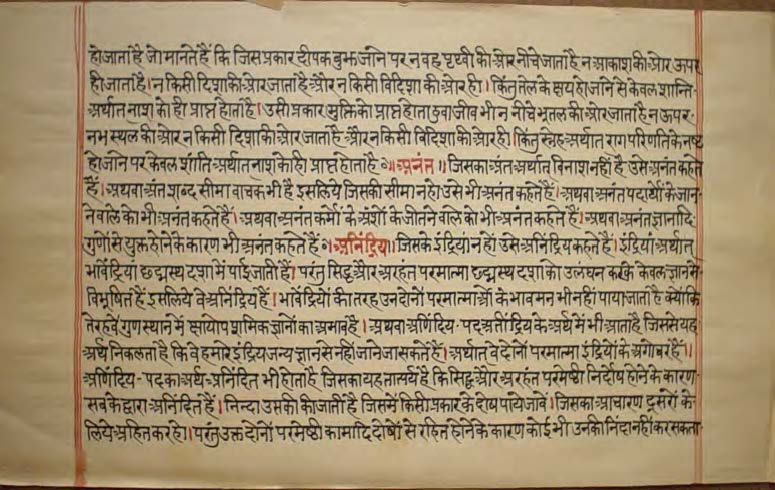 हो जाता है जो मानते हैं कि जिस प्रकार दीपक बुझ जाने पर न वह पृथ्वी की ओर नीचे जाता है न आकाश की ओर ऊपर
ही जाता है। न किसी दिशा की ओर जाता है और न किसी विदिशा की ओर ही। किंतु तेल के क्षय हो जाने से केवल शान्ति-
अर्थात नाश को ही प्राप्त होता है। उसी प्रकार मुक्ति को प्राप्त होता हुवा जीव भी न नीचे भूतल की ओर जाता है न ऊपर-
नभस्थल की ओर न किसी दिशा की ओर जाता है और न किसी विदिशा की ओर ही। किंतु स्नेह अर्थात राग परिणति के नष्ट
हो जाने पर केवल शांति अर्थात नाश को ही प्राप्त होता है ॥ अनंत ॥ जिसका अंत अर्थात विनाश नहीं है उसे अनंत कहते
हैं। अथवा अंत शब्द सीमा वाचक भी है इसलिये जिसकी सीमा न हो उसे भी अनंत कहते हैं। अथवा अनंत पदार्थों के जान-
ने वाले को भी अनंत कहते हैं। अथवा अनंत कर्मों के अंशों के जीतने वाले को भी अनंत कहते हैं। अथवा अनंत ज्ञानादि
गुणों से युक्त होने के कारण भी अनंत कहते हैं ॥ अनिंद्रिय॥ जिसके इंद्रियां न हों उसे अनिंद्रिय कहते हैं। इंद्रियां अर्थात्
भावेंद्रियां छद्मस्थ दशा में पाई जाती हैं। परंतु सिद्ध और अरहंत परमात्मा छद्मस्थ दशा को उलंघन करके केवल ज्ञान से
विभूषित हैं इसलिये वे अनिंद्रिय हैं। भावेंद्रियों की तरह उन दोनों परमात्माओं के भाव मन भी नहीं पाया जाता है क्योंकि
तेरहवें गुणस्थान में क्षायोपशमिक ज्ञानों का अभाव है। अथवा अणिंदिय-पद अतींद्रिय के अर्थ में भी आता है जिससे यह
अर्थ निकलता है कि वे हमारे इंद्रिय जन्य ज्ञान से नहीं जाने जा सकते हैं। अर्थात वे दोनों परमात्मा इंद्रियों के अगोचर हैं॥
अणिंदिय-पद का अर्थ अनिंदित भी होता है जिसका यह तात्पर्य है कि सिद्ध और अरहंत परमेष्ठी निर्दोष होने के कारण
सब के द्वारा अनिंदित हैं। निन्दा उसकी की जाती है जिसमें किसी प्रकार के दोष पाये जावें। जिसका आचरण दूसरों के-
लिये अहितकर हो। परंतु उक्त दोनों परमेष्ठी कामादि दोषों से रहित होने के कारण कोई भी उनकी निंदा नहीं कर सकता-